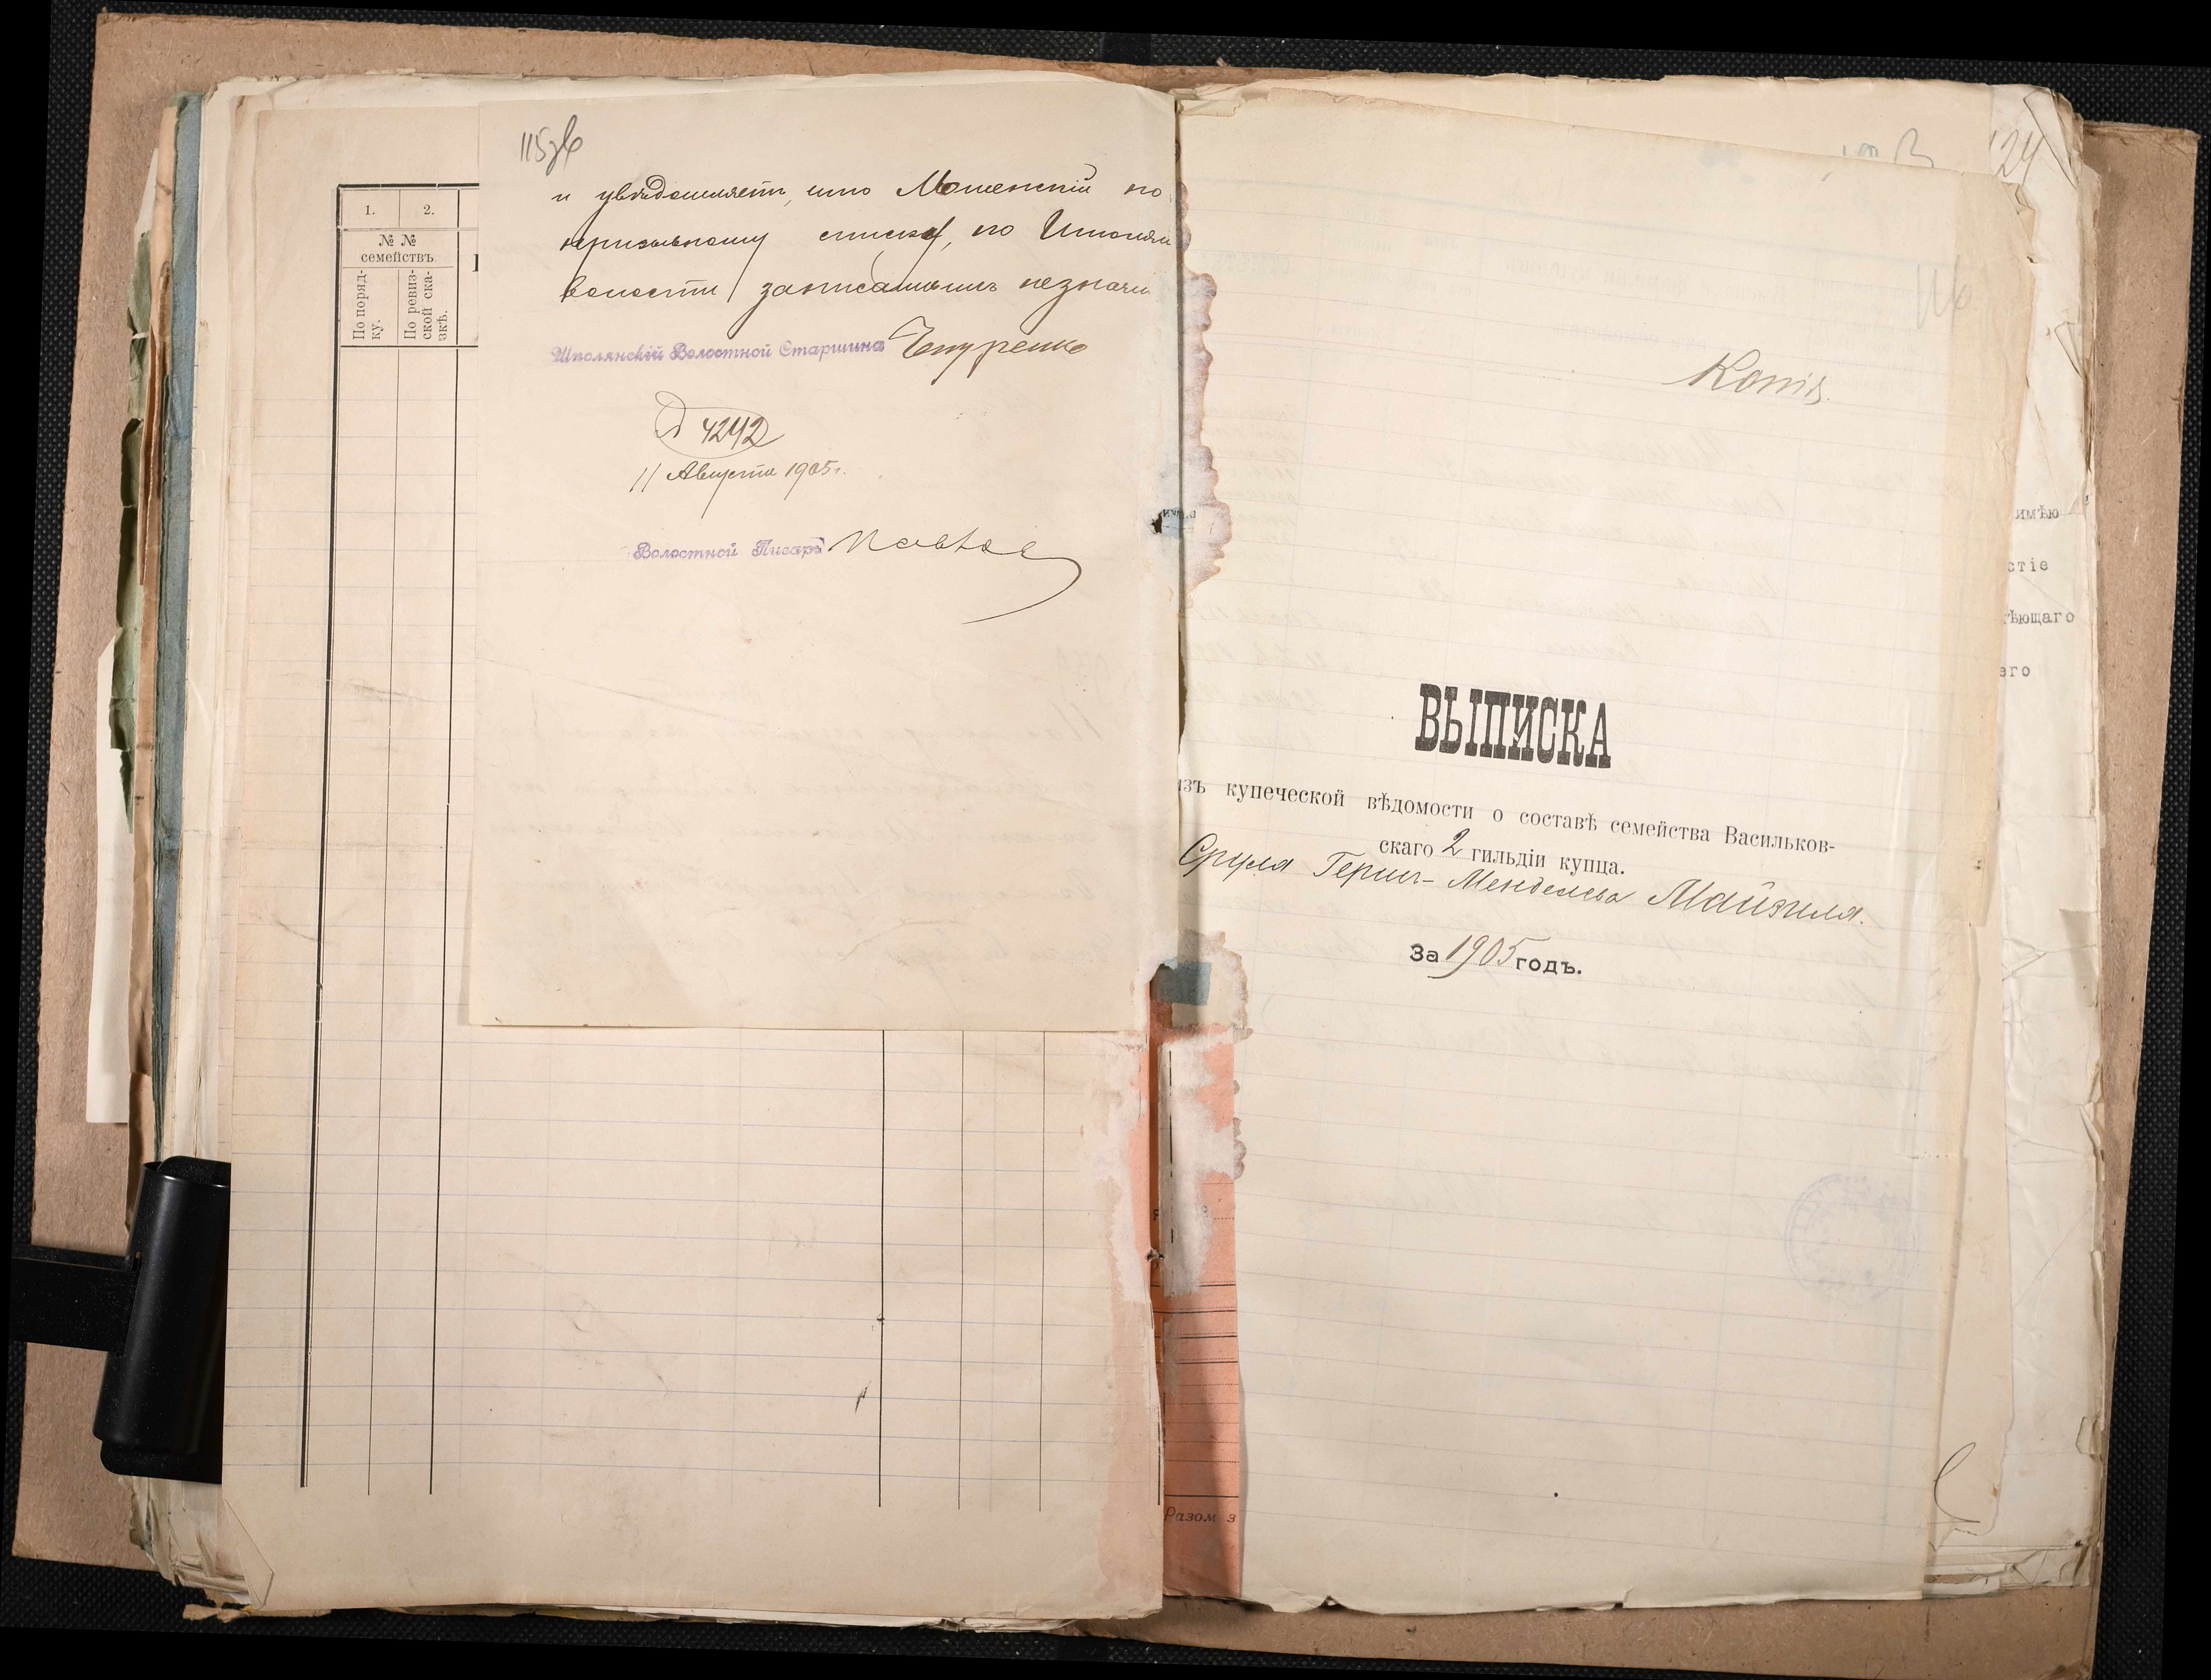 115 зв
и увѣдомляетъ, что Мошенскій по
призывному списку, по Шполян
волости записаннымъ незначи
Шполянскій Волостной Старшина Чепуренко
№ 4242
11 Августа 1905 г.
Волостной Писарь
1.
2.
№ №
семействъ.
По поряд-
ку.
По ревиз-
ской ска-
зкѣ.
116
Копія.
ВЫПИСКА
изъ купеческой вѣдомости о составѣ семейства Васильков-
скаго 2 гильдіи купца.
Сруля Герш-Менделева Майзиля.
За 1905 годъ.
Разом з
124
имѣю
стіе
ѣющаго
его